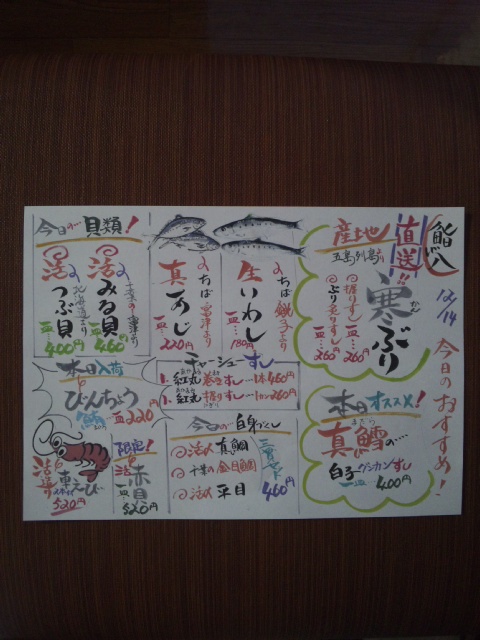 鮨八
12/14 今日のおすすめ!
産地直送!!
五島列島より
寒ぶり
かん
握りずし 一皿…260円
ぶり炙りすし 一皿…260円
本日オススメ!
真鱈の…
まだら
白子グンカンすし
一皿…400円
生いわし
ちば銚子より
一皿…180円
真あじ
ちば富津より
一皿…220円
今日の貝類!
活〆みる貝
一皿460円
活〆つぶ貝
北海道より
一皿400円
チャーシューすし
1、紅丸巻きすし…1本460円
1、紅丸握りすし…1カン230円
本日入荷
びんちょう鮪
一皿220円
今日の白身づくし
活〆真鯛
千葉の金目鯛
活〆平目
三貫セット
460円
限定!
活赤貝
一皿…520円
活造り
車えび
520円